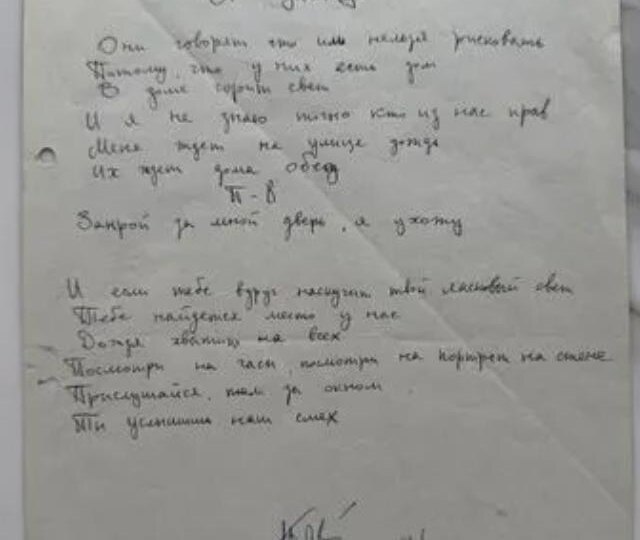 Они говорят что им нельзя рисковать
Потому, что у них есть дом
В доме горит свет
И я не знаю точно кто из нас прав
Меня ждет на улице дождь
Их ждет дома обед
П-В
Закрой за мной дверь, я ухожу
И если тебе вдруг наскучит твой ласковый свет
Тебе найдется место у нас
Дождя хватит на всех
Посмотри на часы, посмотри на портрет на стене
Прислушайся, там за окном
Ты услышишь наш смех